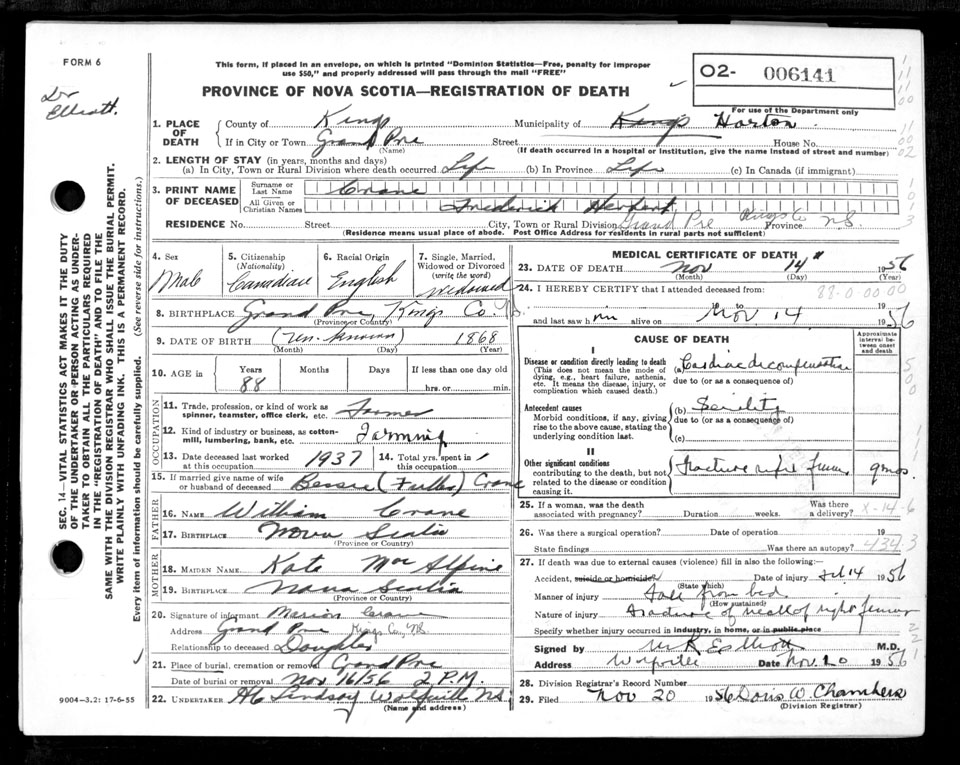 FORM 6
This form, if placed in an envelope, on which is printed "Dominion Statistics—Free, penalty for improper
use $50," and properly addressed will pass through the mail "FREE"
PROVINCE OF NOVA SCOTIA—REGISTRATION OF DEATH
O2- 006141
For use of the Department only
Dr
Elliott.
SEC. 14—VITAL STATISTICS ACT MAKES IT THE DUTY
OF THE UNDERTAKER OR PERSON ACTING AS UNDER-
TAKER TO OBTAIN ALL THE PARTICULARS REQUIRED
IN THE "REGISTRATION OF DEATH" AND TO FILE THE
SAME WITH THE DIVISION REGISTRAR WHO SHALL ISSUE THE BURIAL PERMIT.
WRITE PLAINLY WITH UNFADING INK. THIS IS A PERMANENT RECORD.
Every item of information should be carefully supplied. (See reverse side for instructions.)
9004-3.2: 17-6-55
1. PLACE OF DEATH
County of Kings Municipality of Kings Horton
If in City or Town Grand Pre Street House No.
(Name) (If death occurred in a hospital or institution, give the name instead of street and number)
2. LENGTH OF STAY (in years, months and days)
(a) In City, Town or Rural Division where death occurred Life (b) In Province Life (c) In Canada (if immigrant)
3. PRINT NAME OF DECEASED
Surname or Last Name Crane
All Given or Christian Names Frederick Herbert
RESIDENCE No. Street City, Town or Rural Division Grand Pre Kings Co Province N.S.
(Residence means usual place of abode. Post Office Address for residents in rural parts not sufficient)
4. Sex
Male
5. Citizenship (Nationality)
Canadian
6. Racial Origin
English
7. Single, Married, Widowed or Divorced (write the word)
Widowed
8. BIRTHPLACE Grand Pre, Kings Co. N.S.
(Province or Country)
9. DATE OF BIRTH (Un-known) 1868
(Month) (Day) (Year)
10. AGE in Years Months Days If less than one day old
88 hrs. or min.
OCCUPATION
11. Trade, profession, or kind of work as spinner, teamster, office clerk, etc. Farmer
12. Kind of industry or business, as cotton-mill, lumbering, bank, etc. Farming
13. Date deceased last worked at this occupation 1937
14. Total yrs. spent in this occupation
15. If married give name of wife or husband of deceased Bessie (Fuller) Crane
FATHER
16. NAME William Crane
17. BIRTHPLACE Nova Scotia
(Province or Country)
MOTHER
18. MAIDEN NAME Kate MacAlpine
19. BIRTHPLACE Nova Scotia
(Province or Country)
20. Signature of informant Marion Crane
Address Grand Pre Kings Co., NS.
Relationship to deceased Daughter
21. Place of burial, cremation or removal Grand Pre
Date of burial or removal Nov 16/56 2 P.M.
22. UNDERTAKER Lindsay Wolfville N.S.
(Name and address)
MEDICAL CERTIFICATE OF DEATH
23. DATE OF DEATH Nov 14 1956
(Month) (Day) (Year)
24. I HEREBY CERTIFY that I attended deceased from:
88-0-00-00
19 to
and last saw him alive on Nov 14 1956
CAUSE OF DEATH
Approximate interval between onset and death
I
Disease or condition directly leading to death
(This does not mean the mode of dying, e.g., heart failure, asthenia, etc. It means the disease, injury, or complication which caused death.)
(a) Cardiac decompensation
due to (or as a consequence of)
Antecedent causes
Morbid conditions, if any, giving rise to the above cause, stating the underlying condition last.
(b) Senility
due to (or as a consequence of)
(c)
II
Other significant conditions
contributing to the death, but not related to the disease or condition causing it.
Fracture right femur 9 mos
25. If a woman, was the death associated with pregnancy? Duration weeks. Was there a delivery?
X-14-6
26. Was there a surgical operation? Date of operation 19
State findings Was there an autopsy?
434.3
27. If death was due to external causes (violence) fill in also the following:
Accident, suicide or homicide Date of injury Feb 14 1956
(State which)
Manner of injury Fall from bed
(How sustained)
Nature of injury Fracture of neck of right femur
Specify whether injury occurred in industry, in home, or in public place
Signed by Elliott M.D.
Address Wolfville Date Nov. 20 1956
28. Division Registrar's Record Number
29. Filed Nov 20 1956 Doris W. Chambers
(Division Registrar)